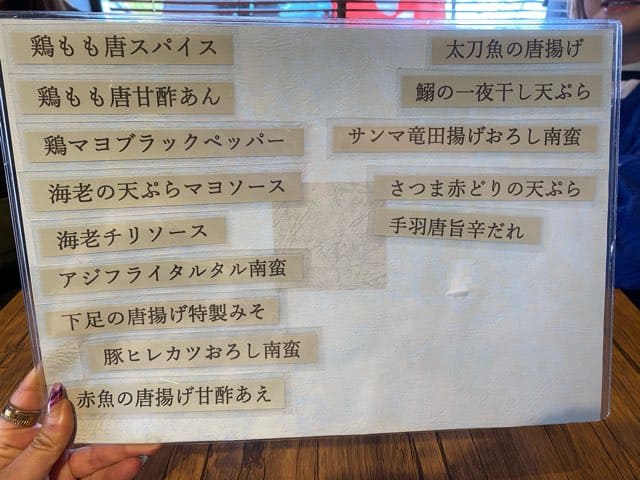 鶏もも唐スパイス
鶏もも唐甘酢あん
鶏マヨブラックペッパー
海老の天ぷらマヨソース
海老チリソース
アジフライタルタル南蛮
下足の唐揚げ特製みそ
豚ヒレカツおろし南蛮
赤魚の唐揚げ甘酢あえ
太刀魚の唐揚げ
鰯の一夜干し天ぷら
サンマ竜田揚げおろし南蛮
さつま赤どりの天ぷら
手羽唐旨辛だれ